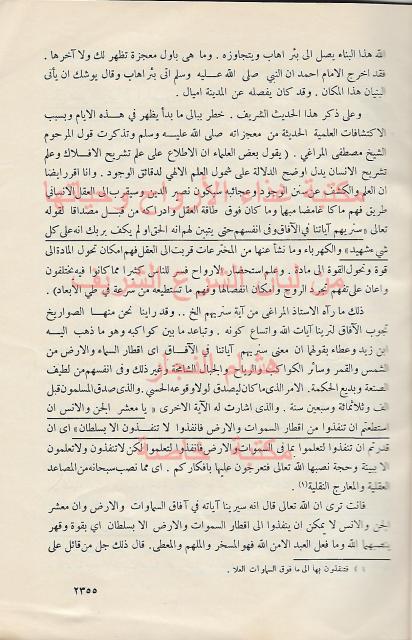 الله هذا البناء يصل الى بئر اهاب ويتجاوزه . وما هى باول معجزة تظهر لك ولا آخرها .
فقد اخرج الامام احمد ان النبي صلى الله عليه وسلم اتى بئر اهاب وقال يوشك ان يأتى
البنيان هذا المكان . وقد كان يفصله عن المدينة اميال .
وعلى ذكر هذا الحديث الشريف . خطر ببالى ما بدأ يظهر في هذه الايام وبسبب
الاكتشافات العلمية الحديثة من معجزاته صلى الله عليه وسلم وتذكرت قول المرحوم
الشيخ مصطفى المراغي . ( يقول بعض العلماء ان الاطلاع على علم تشريح الافلاك وعلم
تشريح الانسان يدل اوضح الدلالة على شمول العلم الالهي لدقائق الوجود . وانا اقر ايضا
ان العلم والكشف عن سنن الوجود وعجائبه سيكون نصير الدين وسيقرب الى العقل الانسانى
طريق فهم ما كان غامضا مبهما وما كان فوق طاقة العقل وادراكه من قبل مصداقا لقوله
تعالى « سنريهم آياتنا في الآفاق وفى انفسهم حتى يتبين لهم انه الحق او لم يكف بربك انه على كل
شي شهيد » والكهرباء وما نشأ عنها من المخترعات قربت الى العقل فهم امكان تحول المادة الى
قوة وتحول القوة الى مادة . وعلم استحضار الارواح فسر للناس كثيرا مما كانوا فيه يختلفون
واعان على تفهم تجرد الروح وامكان انفصالها وفهم ما تستطيعه من سرعة في طي الابعاد ) .
ذلك ما رآه الاستاذ المراغي من آية سنريهم الخ .. وقد راينا نحن منها الصواريخ
تجوب الآفاق لترينا آيات الله واتساع كونه . وتباعد ما بين كواكبه وهو ما ذهب اليه
ابن زيد وعطاء بقولهما ان معنى سنريهم آياتنا في الآفاق اى اقطار السماء والارض من
الشمس والقمر وسائر الكواكب والرياح والجبال الشامخة وغير ذلك وفى انفسهم من لطيف
الصنعة وبديع الحكمة . الامر الذى ما كان ليصدق لولا وقوعه الحسي . والذى صدق المسلمون قبل
الف وثلاثمائة وسبعين سنة . والذى اشارت له الآية الاخرى « يا معشر الجن والانس ان
استطعتم ان تنفذوا من اقطار السموات والارض فانفذوا لا تنفذون الا بسلطان » اى ان
قدرتم ان تنفذوا لتعلموا بما فى السموات والارض فانفذوا لتعلموا لكن لا تنفذون ولا تعلمون
الا ببينة وحجة نصبها الله تعالى فتعرجون عليها بافكاركم . اى مما نصب سبحانه من المصاعد
العقلية والمعارج النقلية (١) .
فانت ترى ان الله تعالى قال انه سيرينا آياته في آفاق السماوات والارض وان معشر
الجن والانس لا يمكن ان ينفذوا الى اقطار السموات والارض الا بسلطان اي بقوة وقهر
الله وما فعل العبد الا من الله فهو المسخر والملهم والمعطى . قال ذلك جل من قائل على
فتنفذون بها الى ما فوق السماوات العلا .
٢٣٥٥
مكتبة غذاء الارواح وحياتها
من لبان الشرع الشريف
هشام النجار
مكتبة خاصة